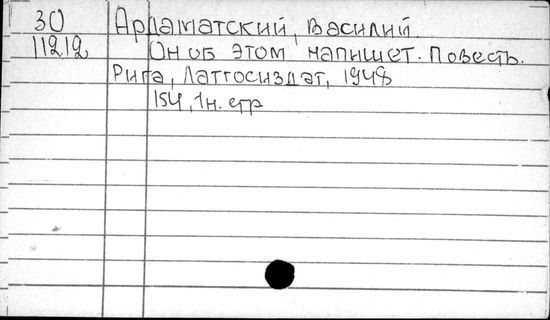 30 Ардаматский, Василий.
11212 Он об этом напишет. Повесть.
Рига, Латгосиздат, 1948
154, 1н. стр